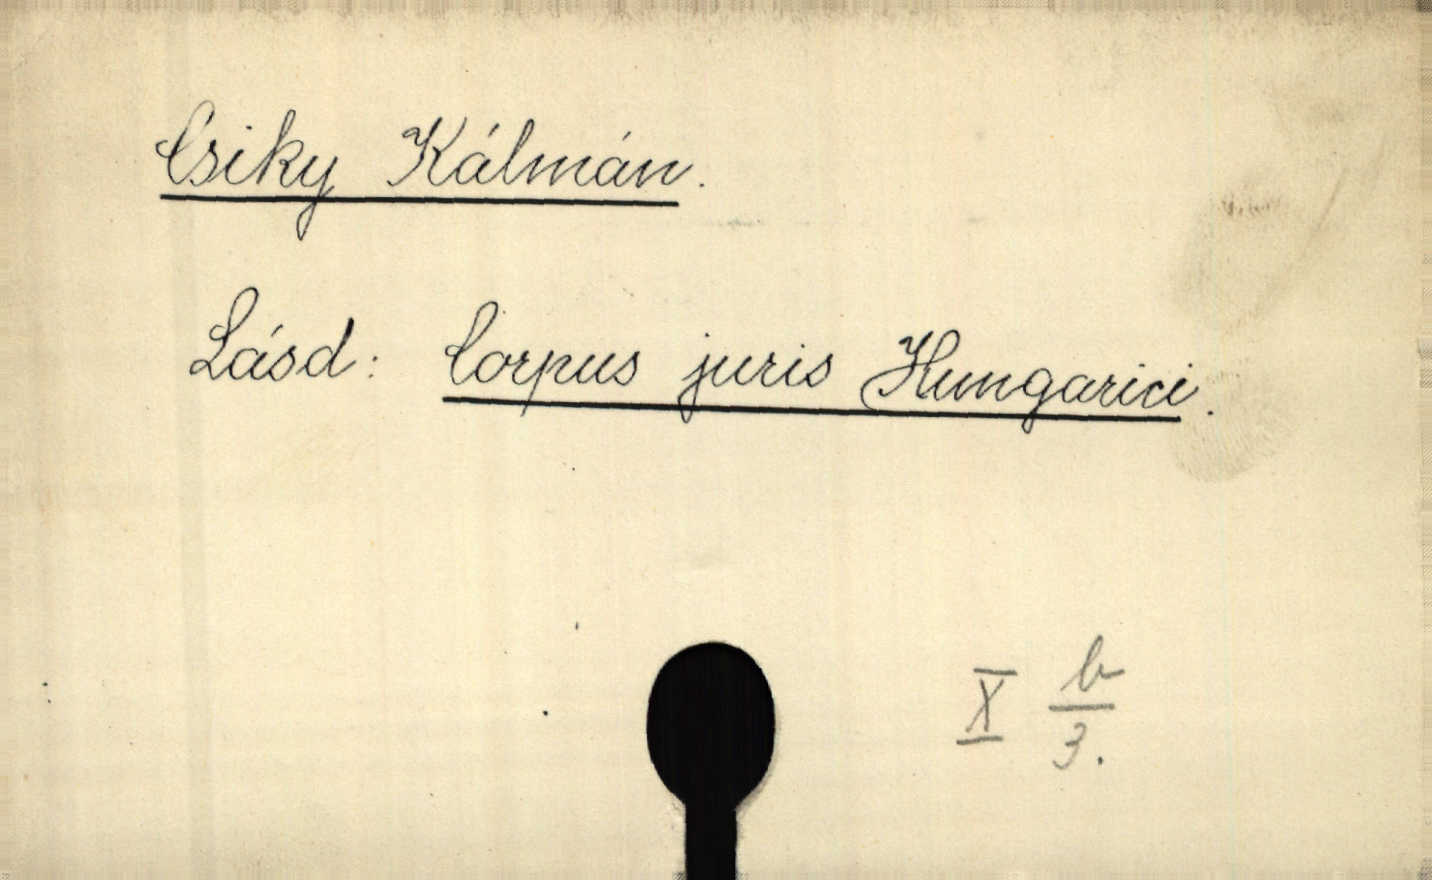 Csiky Kálmán.
Lásd: Corpus juris Hungarici.
X b/3.